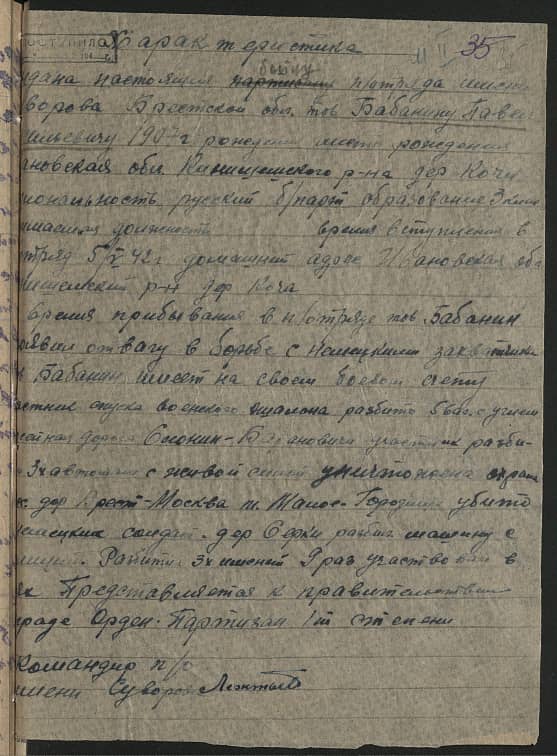 Характеристика 35
бойцу
дана настоящая п/отряда имени
ворова Брестской обл. тов Бабанину Павел
ильевичу 1907 г рождения место рождения
ановская обл. Кинешемского р-на дер
иональность русский б/парт образование 3 класс
имаемая должность время вступления в
тряд 5/V 42 г домашний адрес Ивановская обл
нешемский р-н дер
время прибывания в п/отряде тов Бабанин
оявил отвагу в борьбе с немецкими захватчика
Бабанин имеет на своем боевом счету
астник спуска военского эшалона разбито 5 ваг. с углем
дорога Слоним-Барановичи участник разби-
3х автомашин с живой силой уничтожена охрана
ж. дор Брест-Москва м. убито
немецких солдат. дер разбил машину с
Разбитии 3х имений 9 раз участвовал в
ях Представляется к правительствен
граде Орден-Партизан 1й степени
Командир п/о
имени Суворова